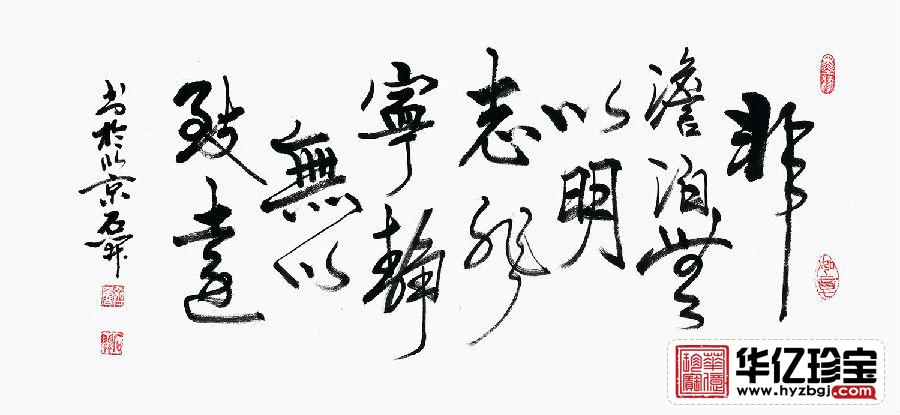 非
澹泊無
以明
志非
寧靜
無以
致遠
书於北京石开
华亿珍宝
www.hyzbgj.com